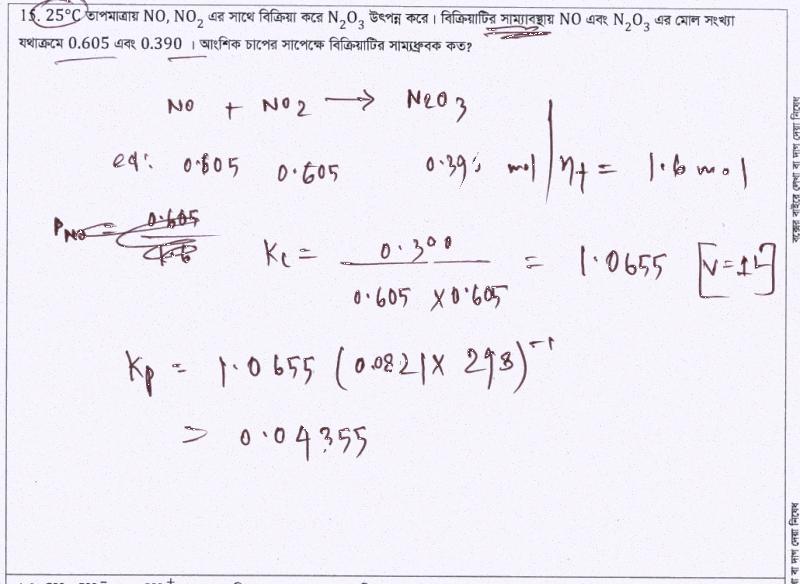 15. 25°C তাপমাত্রায় NO, NO₂ এর সাথে বিক্রিয়া করে N₂O₃ উৎপন্ন করে। বিক্রিয়াটির সাম্যাবস্থায় NO এবং N₂O₃ এর মোল সংখ্যা
যথাক্রমে 0.605 এবং 0.390 । আংশিক চাপের সাপেক্ষে বিক্রিয়াটির সাম্যধ্রুবক কত?
NO + NO2 → N2O3
eq: 0.605 0.605 0.390 mol | nt = 1.6 mol
PNO = 0.605 / 1.6
Kc = 0.390 / 0.605 × 0.605 = 1.0655 [V=1L]
Kp = 1.0655 (0.0821 × 298)⁻¹
= 0.04355